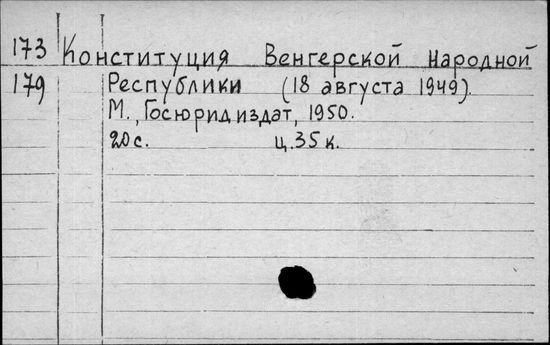 173 Конституция Венгерской Народной
179 Республики (18 августа 1949).
М., Госюриздат, 1950.
20 с. ц. 35 к.